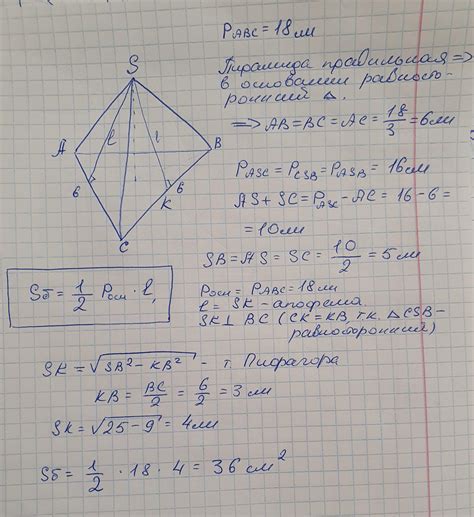 P_ABC = 18 см
Пирамида правильная =>
в основании равносто-
ронний Δ.
=> AB = BC = AC = 18/3 = 6 см
P_ASC = P_CSB = P_ASB = 16 см
AS + SC = P_ASC - AC = 16 - 6 =
= 10 см
SB = AS = SC = 10/2 = 5 см
S
A
B
C
K
l
l
6
6
Sб = 1/2 Pосн · l,
Pосн = P_ABC = 18 см
l = SK - апофема
SK ⊥ BC (CK = KB, т.к. ΔCSB -
равносторонний)
SK = √(SB² - KB²) - т. Пифагора
KB = BC/2 = 6/2 = 3 см
SK = √(25 - 9) = 4 см
Sб = 1/2 · 18 · 4 = 36 см²